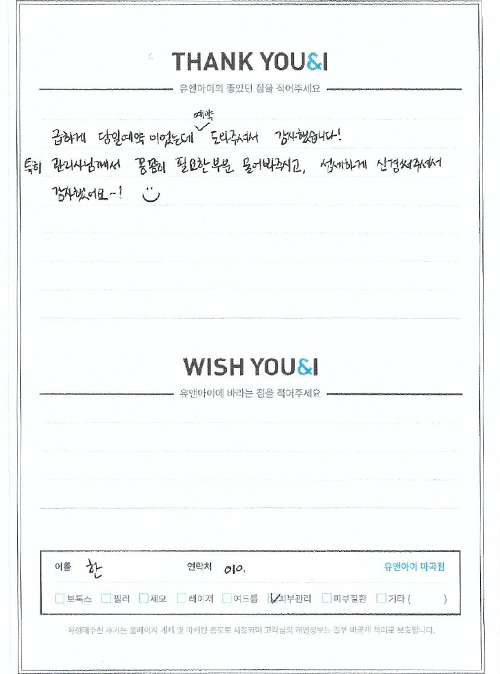 THANK YOU&I
유앤아이의 좋았던 점을 적어주세요
예약
급하게 당일예약이었는데 도와주셔서 감사했습니다!
특히 관리사님께서 꼼꼼히 필요한 부분 물어봐주시고, 섬세하게 신경써주셔서
감사했어요~! 
WISH YOU&I
유앤아이에 바라는 점을 적어주세요
이름 한 연락처 010. 유앤아이 마곡점
보톡스 필러 제모 레이저 여드름 피부관리 피부질환 기타 ( )
작성해주신 후기는 홈페이지 게재 및 마케팅 용도로 사용되며 고객님의 개인정보는 일부 비공개 처리로 보호됩니다.